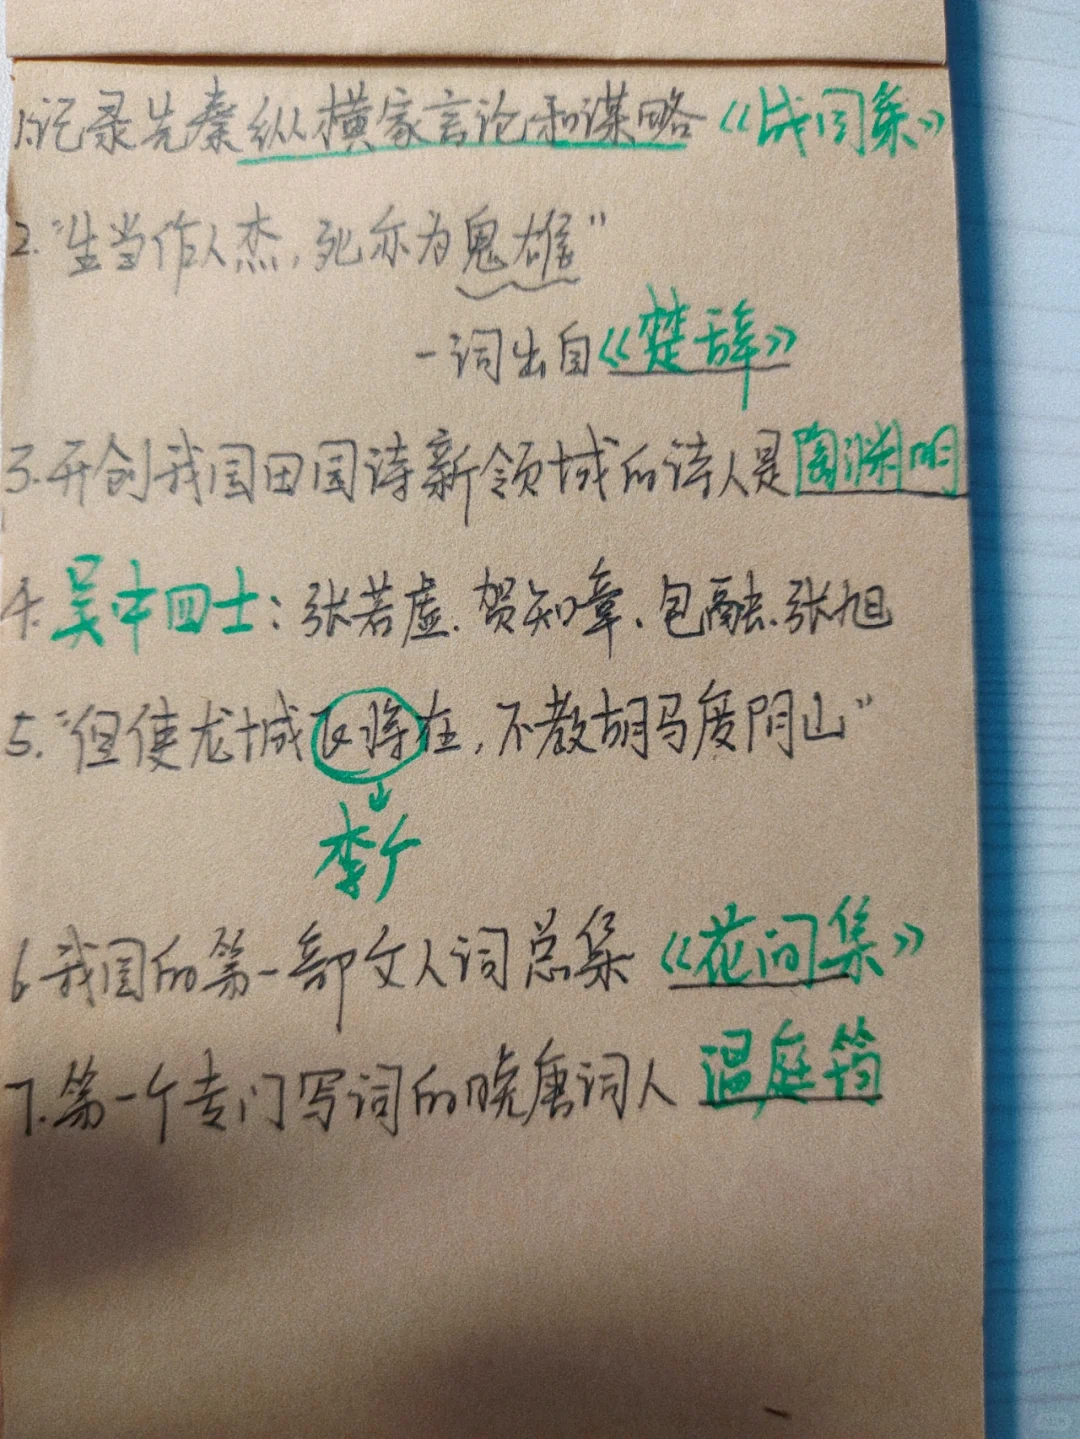 1.记录先秦纵横家言论和谋略《战国策》
2.“生当作人杰,死亦为鬼雄”
一词出自《楚辞》
3.开创我国田园诗新领域的诗人是陶渊明
4.吴中四士:张若虚、贺知章、包融、张旭
5.“但使龙城飞将在,不教胡马度阴山”
李广
6.我国的第一部文人词总集《花间集》
7.第一个专门写词的晚唐词人 温庭筠